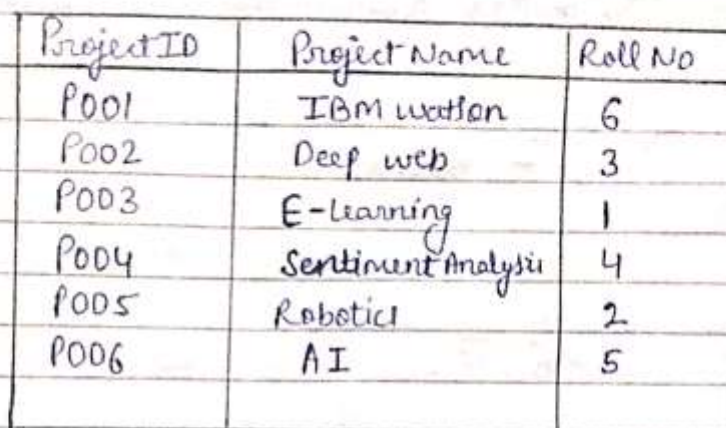 Project ID Project Name Roll No
P001 IBM watson 6
P002 Deep web 3
P003 E-Learning 1
P004 Sentiment Analysis 4
P005 Robotics 2
P006 AI 5